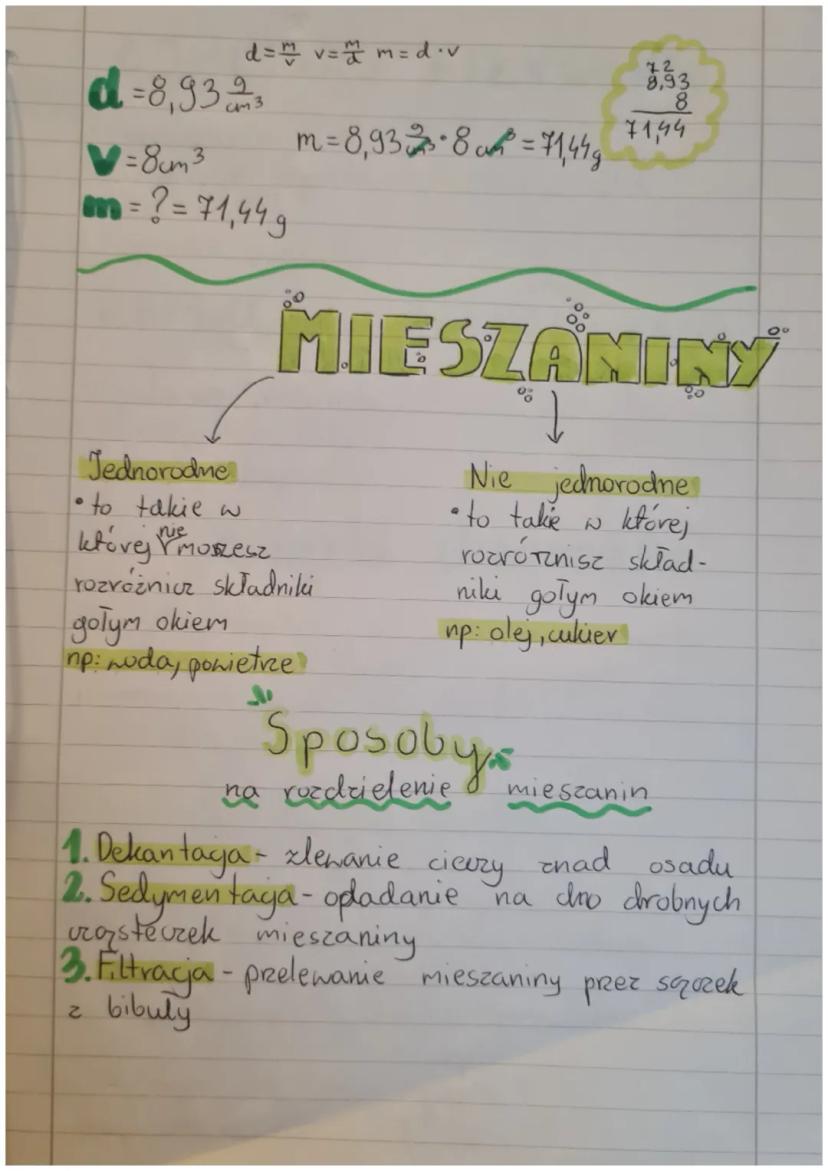 d = m/v v = m/d m = d · v
d = 8,93 g/cm³
72
8,93
8
71,44
m = 8,93 g/cm³ · 8 cm³ = 71,44 g
v = 8 cm³
m = ? = 71,44 g
MIESZANINY
Jednorodne
• to takie w
której nie możesz
rozróżnicz składniki
gołym okiem
np: woda, powietrze
Nie jednorodne
• to takie w której
rozróżnisz skład-
niki gołym okiem
np: olej, cukier
Sposoby
na rozdzielenie mieszanin
1. Dekantacja - zlewanie cieczy znad osadu
2. Sedymentacja - opładanie na dno drobnych
cząsteczek mieszaniny
3. Filtracja - przelewanie mieszaniny przez sączek
z bibuły